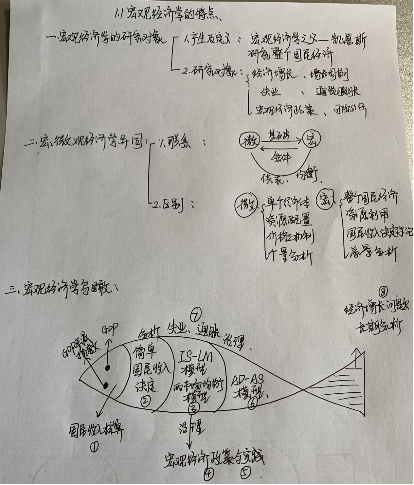 1.1 宏观经济学的特点
一、宏观经济学的研究对象
1.产生及定义：宏观经济学之父—凯恩斯
研究整个国民经济
2.研究对象：经济增长、
失业、通货膨胀
宏观经济政策、
二、宏微观经济学异同：
1.联系：
微
宏
2.区别：
微
单个经济
资源配置
价格机制
个量分析
宏
整个国民经济
资源利用
国民收入决定
总量分析
三、宏观经济学
⑧
经济增长问题
长期分析
⑦
分析 失业、通胀
GDP
国民收入核算
①
简单
国民收入
决定
②
IS-LM
模型
③
AD-AS
模型
⑥
治理
宏观经济政策与实践
④ ⑤